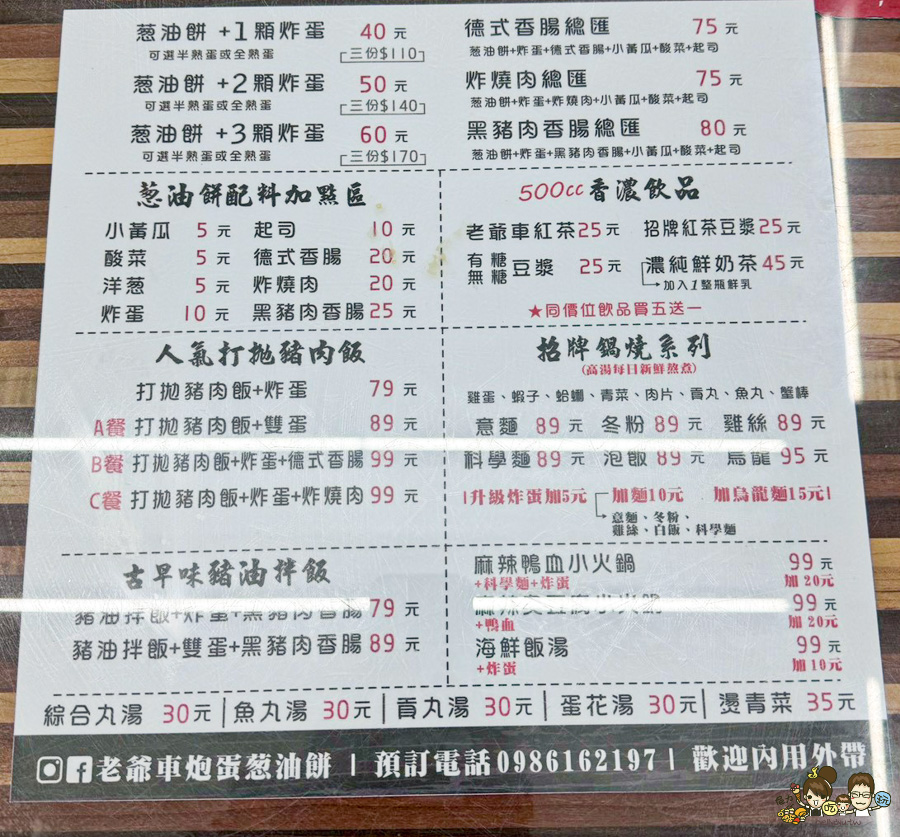 葱油餅 +1顆炸蛋 40 元
可選半熟蛋或全熟蛋 三份$110
葱油餅 +2顆炸蛋 50 元
可選半熟蛋或全熟蛋 三份$140
葱油餅 +3顆炸蛋 60 元
可選半熟蛋或全熟蛋 三份$170
德式香腸總匯 75 元
葱油餅+炸蛋+德式香腸+小黃瓜+酸菜+起司
炸燒肉總匯 75 元
葱油餅+炸蛋+炸燒肉+小黃瓜+酸菜+起司
黑豬肉香腸總匯 80 元
葱油餅+炸蛋+黑豬肉香腸+小黃瓜+酸菜+起司
葱油餅配料加點區
小黃瓜 5 元 起司 10 元
酸菜 5 元 德式香腸 20 元
洋葱 5 元 炸燒肉 20 元
炸蛋 10 元 黑豬肉香腸 25 元
500cc香濃飲品
老爺車紅茶25元 招牌紅茶豆漿25元
有糖無糖豆漿 25元 濃純鮮奶茶45元
加入1整瓶鮮乳
★同價位飲品買五送一
人氣打拋豬肉飯
打拋豬肉飯+炸蛋 79 元
A餐 打拋豬肉飯+雙蛋 89 元
B餐 打拋豬肉飯+炸蛋+德式香腸 99 元
C餐 打拋豬肉飯+炸蛋+炸燒肉 99 元
招牌鍋燒系列
(高湯每日新鮮熬煮)
雞蛋、蝦子、蛤蠣、青菜、肉片、貢丸、魚丸、蟹棒
意麵 89 元 冬粉 89 元 雞絲 89 元
科學麵 89 元 泡飯 89 元 烏龍 95 元
|升級炸蛋加5元 加麵10元 加烏龍麵15元|
意麵、冬粉、
雞絲、白飯、科學麵
古早味豬油拌飯
豬油拌飯+炸蛋+黑豬肉香腸 79 元
豬油拌飯+雙蛋+黑豬肉香腸 89 元
麻辣鴨血小火鍋 99 元
+科學麵+炸蛋 加 20元
麻辣臭豆腐小火鍋 99 元
+鴨血 加 20元
海鮮飯湯 99 元
+炸蛋 加 10元
綜合丸湯 30元|魚丸湯 30元|貢丸湯 30元|蛋花湯 30元|燙青菜 35元
老爺車炮蛋葱油餅 | 預訂電話0986162197 | 歡迎內用外帶